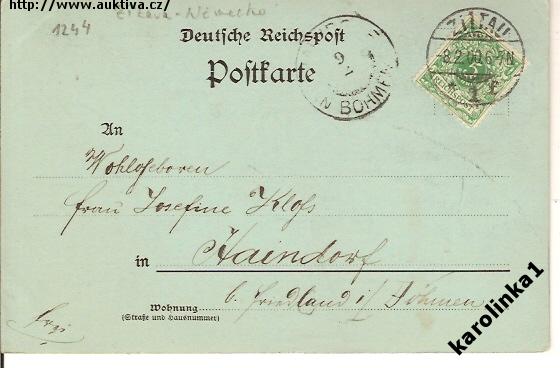 http://www.auktiva.cz/
1244
Deutsche Reichspost
Postkarte
ZITTAU
8.2.00.6-7N
* 1 f
REICHSPOST
9
2
IN BÖHMEN
An
Wohlgeboren
Frau Josefine Kloss
in Haindorf
b. Friedland i/ Böhmen
Wohnung
(Straße und Hausnummer)
karolinka1